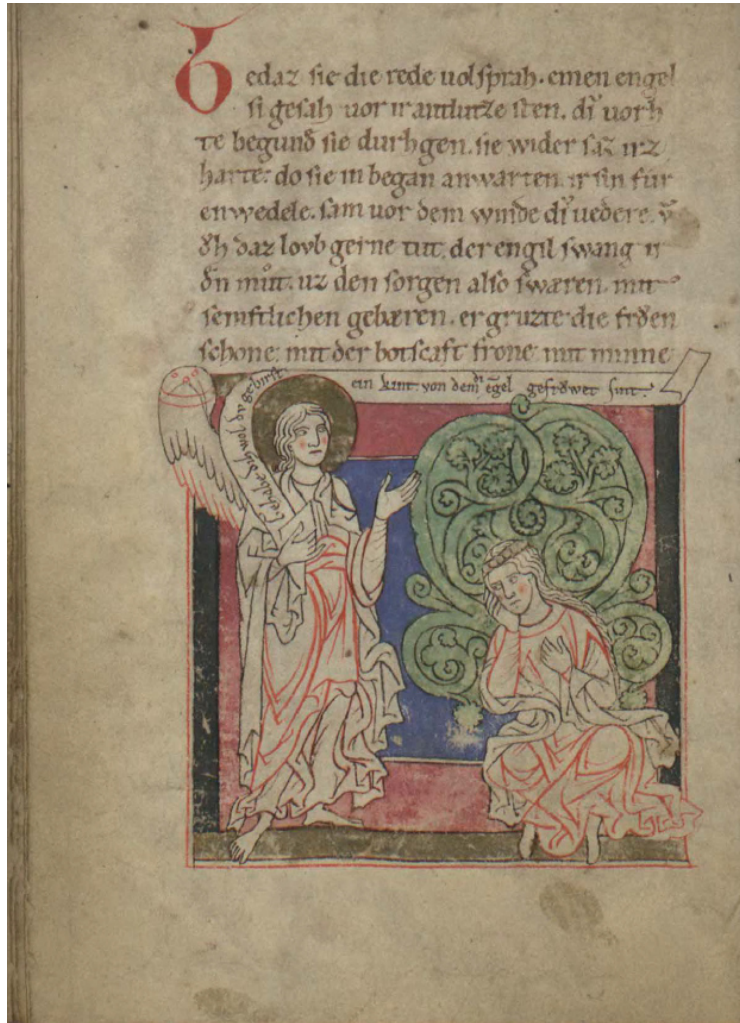 Bedaz sie die rede uolsprah. einen engel
si gesah uor ir antlutze sten. di uorh
te begund sie durhgen. sie wider saz irz
harte: do sie in began anwarten. ir sin fur
enwedele. sam uor dem winde di uedere. v̄
ðh daz lovb gerne tut. der engil swang ir
ðn můt. uz den sorgen also swæren. mit
semftlichen gebæren. er gruzte die frðen
schone: mit der botscaft frone. mit minne
behabe dih wol du gebirst
ein kint. von dem engel gefrðwet sint.